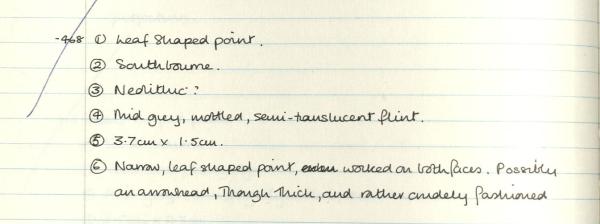 -468 ① Leaf shaped point.
② Southbourne.
③ Neolithic?
④ Mid grey, mottled, semi-translucent flint.
⑤ 3.7cm x 1.5cm.
⑥ Narrow, leaf shaped point, worked on both faces. Possibly
an arrowhead, Though Thick, and rather crudely fashioned